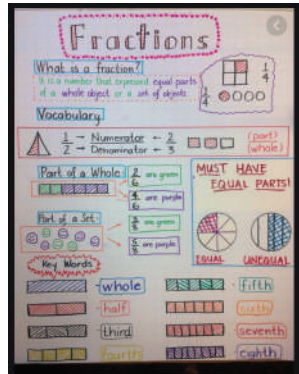 Fractions
What is a fraction?
It is a number that expresses equal parts
of a whole object or a set of objects
1/4
1/4
Vocabulary
1/2 → Numerator ← 2/3 (part)
→ Denominator ← (whole)
Part of a Whole
2/6 are green
4/6 are purple
Part of a Set
3/8 are green
5/8 are purple
MUST HAVE
EQUAL PARTS!
EQUAL UNEQUAL
Key Words
whole
half
third
fourth
fifth
sixth
seventh
eighth